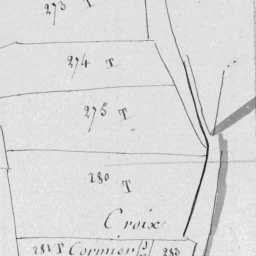 273 T
274 T
275 T
280 T
Croix
281 T Cormier 282 283